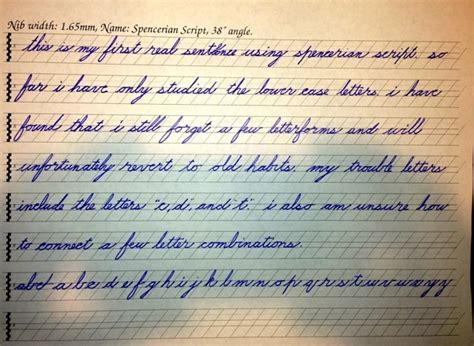 Nib width: 1.65mm, Name: Spencerian Script, 38° angle.
this is my first real sentence using spencerian script. so
far i have only studied the lower case letters. i have
found that i still forget a few letterforms and will
unfortunately revert to old habits. my trouble letters
include the letters "c, d, and t". i also am unsure how
to connect a few letter combinations.
abct a b c d e f g h i j k l m n o p q r s t u v w x y z